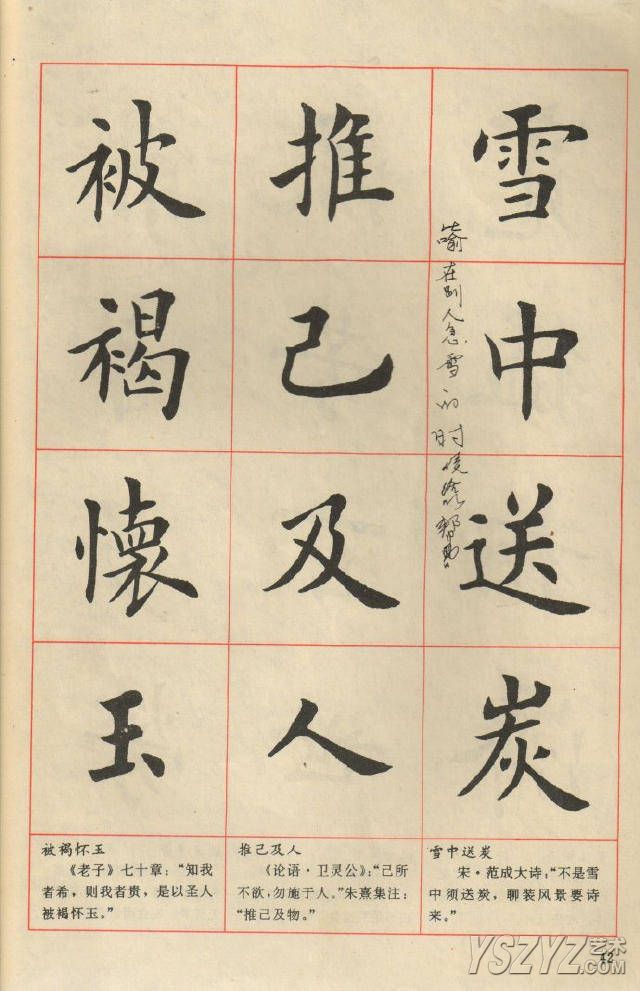 雪中送炭
推己及人
被褐懷玉
喻在别人急需的时候给以帮助。
被褐怀玉
《老子》七十章：“知我
者希，则我者贵，是以圣人
被褐怀玉。”
推己及人
《论语·卫灵公》：“己所
不欲，勿施于人。”朱熹集注：
“推己及物。”
雪中送炭
宋·范成大诗：“不是雪
中须送炭，聊装风景要诗
来。”
42
YSZYZ艺术
.COM